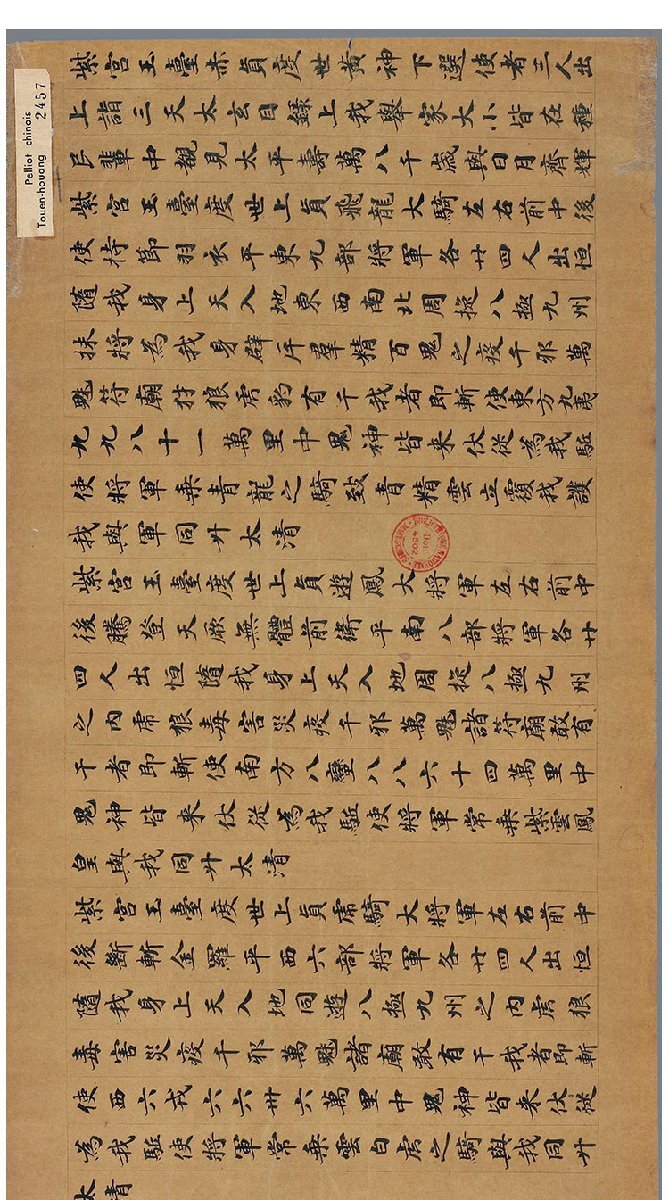 Pelliot chinois
Touen-houang 2457
紫宮玉臺赤貞度世黃神下選使者三人出
上詣三天太玄目錄上我舉家大小皆在種
民輩中覩見太平壽萬八千歲與日月齊輝
紫宮玉臺度世上貞飛龍大騎左右前中後
使持節羽衣平東九部將軍各廿四人出恒
隨我身上天入地東西南北周旋八極九州
將為我身辟斥羣精百鬼之疫千邪萬
魅符廟犲狼虎豹有干我者即斬使東方九夷
九九八十一萬里中鬼神皆來伏從為我駈
使將軍乘青龍之騎致青精雲立覆我護
我與軍同升太清
紫宮玉臺度世上貞遊鳳大將軍左右前中
後騰登天厥無體前衝平南八部將軍各廿
四人出恒隨我身上天入地周旋八極九州
之內虎狼毒害災疫千邪萬魅諸符廟敢有
干者即斬使南方八蠻八八六十四萬里中
鬼神皆來伏從為我駈使將軍常乘紫雲鳳
皇與我同升太清
紫宮玉臺度世上貞虎騎大將軍左右前中
後斷斬金羅平西六部將軍各廿四人出恒
隨我身上天入地同遊八極九州之內虎狼
毒害災疫千邪萬魅諸廟敢有干我者即斬
使西六戎六六卅六萬里中鬼神皆來伏從
為我駈使將軍常乘雲白虎之騎與我同升
太清
Don
4502